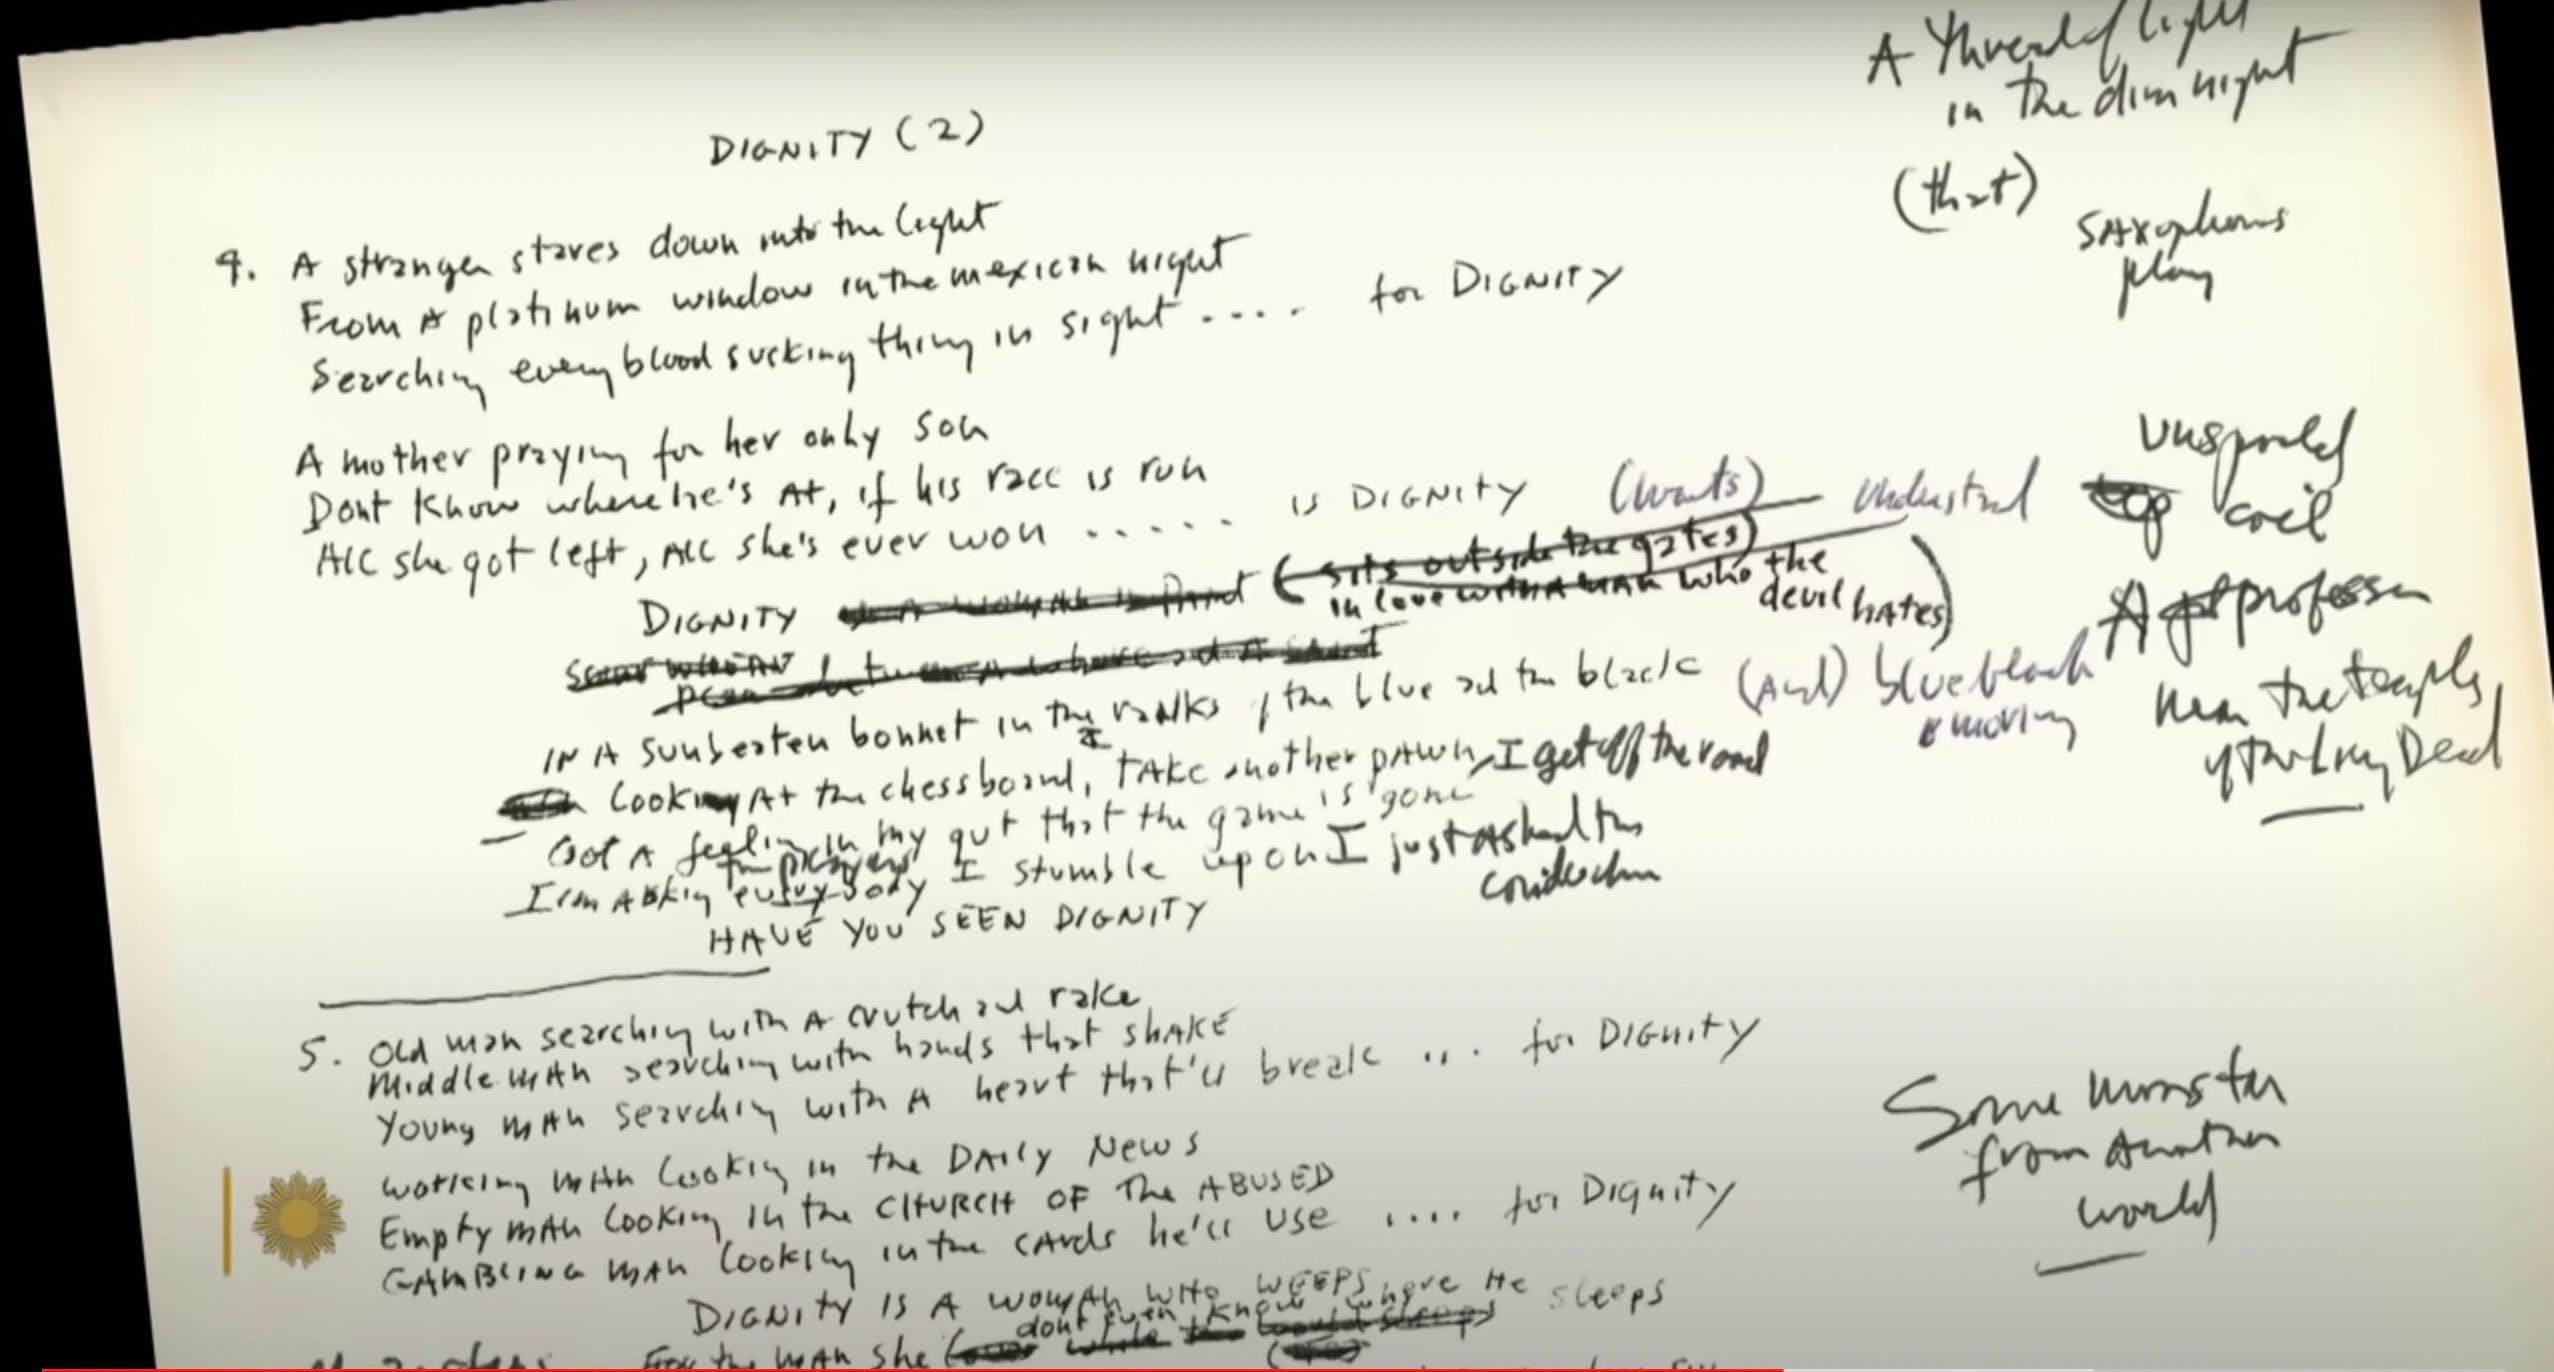 A Thread of light
in the dim night
(that)
Saxophones
play
DIGNITY (2)
4. A stranger stares down into the light
From A platinum window in the mexican night
Searching every blood sucking thing in sight .... for DIGNITY
A mother praying for her only son
Dont Know where he's At, if his race is run
All she got left, All she's ever won ..... is DIGNITY (wants) understand
Unspoiled
coil
DIGNITY (sits outside the gates)
in love with A man who the
devil hates)
A professor
Near the temples
of the Dead
IN A Sunbeaten bonnet in the ranks of the blue and the black (And) blue black
moving
Looking At the chessboard, TAKE another pawn, I get off the road
Got A feelin in my gut that the game is gone
I'm Askin everybody I stumble upon I just Asked the
HAVE YOU SEEN DIGNITY
5. Old man searching with A crutch and rake
Middle man searching with hands that SHAKE
Young man searching with A heart that'll break .... for DIGNITY
Working man Looking in the DAILY News
Empty man Looking in the CHURCH OF The ABUSED
GAMBLING man Looking in the CArds he'll use .... for DIGNITY
Some monster
from Another
world
DIGNITY IS A WOMAN WHO WEEPS
dont even know where He sleeps
For the man she